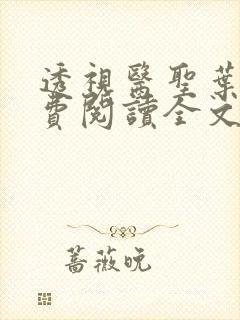 透視醫聖葉
費閱讀全文
蔷薇晚